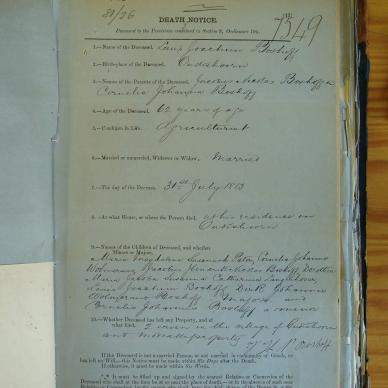 28/26
7549
DEATH NOTICE.
Pursuant to the Provisions contained in Section 9, Ordinance 104.
1.—Name of the Deceased. Louis Joachim Boshoff
2.—Birthplace of the Deceased. Oudtshoorn
3.—Names of the Parents of the Deceased. Jacobus Nicolas Boshoff &
Cornelia Johanna Boshoff
4.—Age of the Deceased. 62 years of age
5.—Condition in Life. Agriculturist
6.—Married or unmarried, Widower or Widow. Married
7.—The day of the Decease. 31st July 1893
8.—At what House, or where the Person died. at his residence in
Oudtshoorn
9.—Names of the Children of Deceased, and whether
Minors or Major.
Maria Magdalena Susannah Cornelia Johanna
Hendrik Nicolas Boshoff
Maria Jacoba Catharina
Louis Joachim Boshoff, Johannes
Boshoff Majors and
Cornelis Johannes Boshoff a minor
10.—Whether Deceased has left any Property, and of
what kind. 2 in the village of Oudtshoorn
and moveable property
If the Deceased is not a married Person, or not married in community of Goods, or
has left no Will,—this Notice must be made within Six Days after the Death.
If otherwise, it must be made within Six Weeks.
It must be filled up and signed by the nearest Relative or Connection of the
Deceased who shall at the time be at or near the place of death,—or in the absence of such near